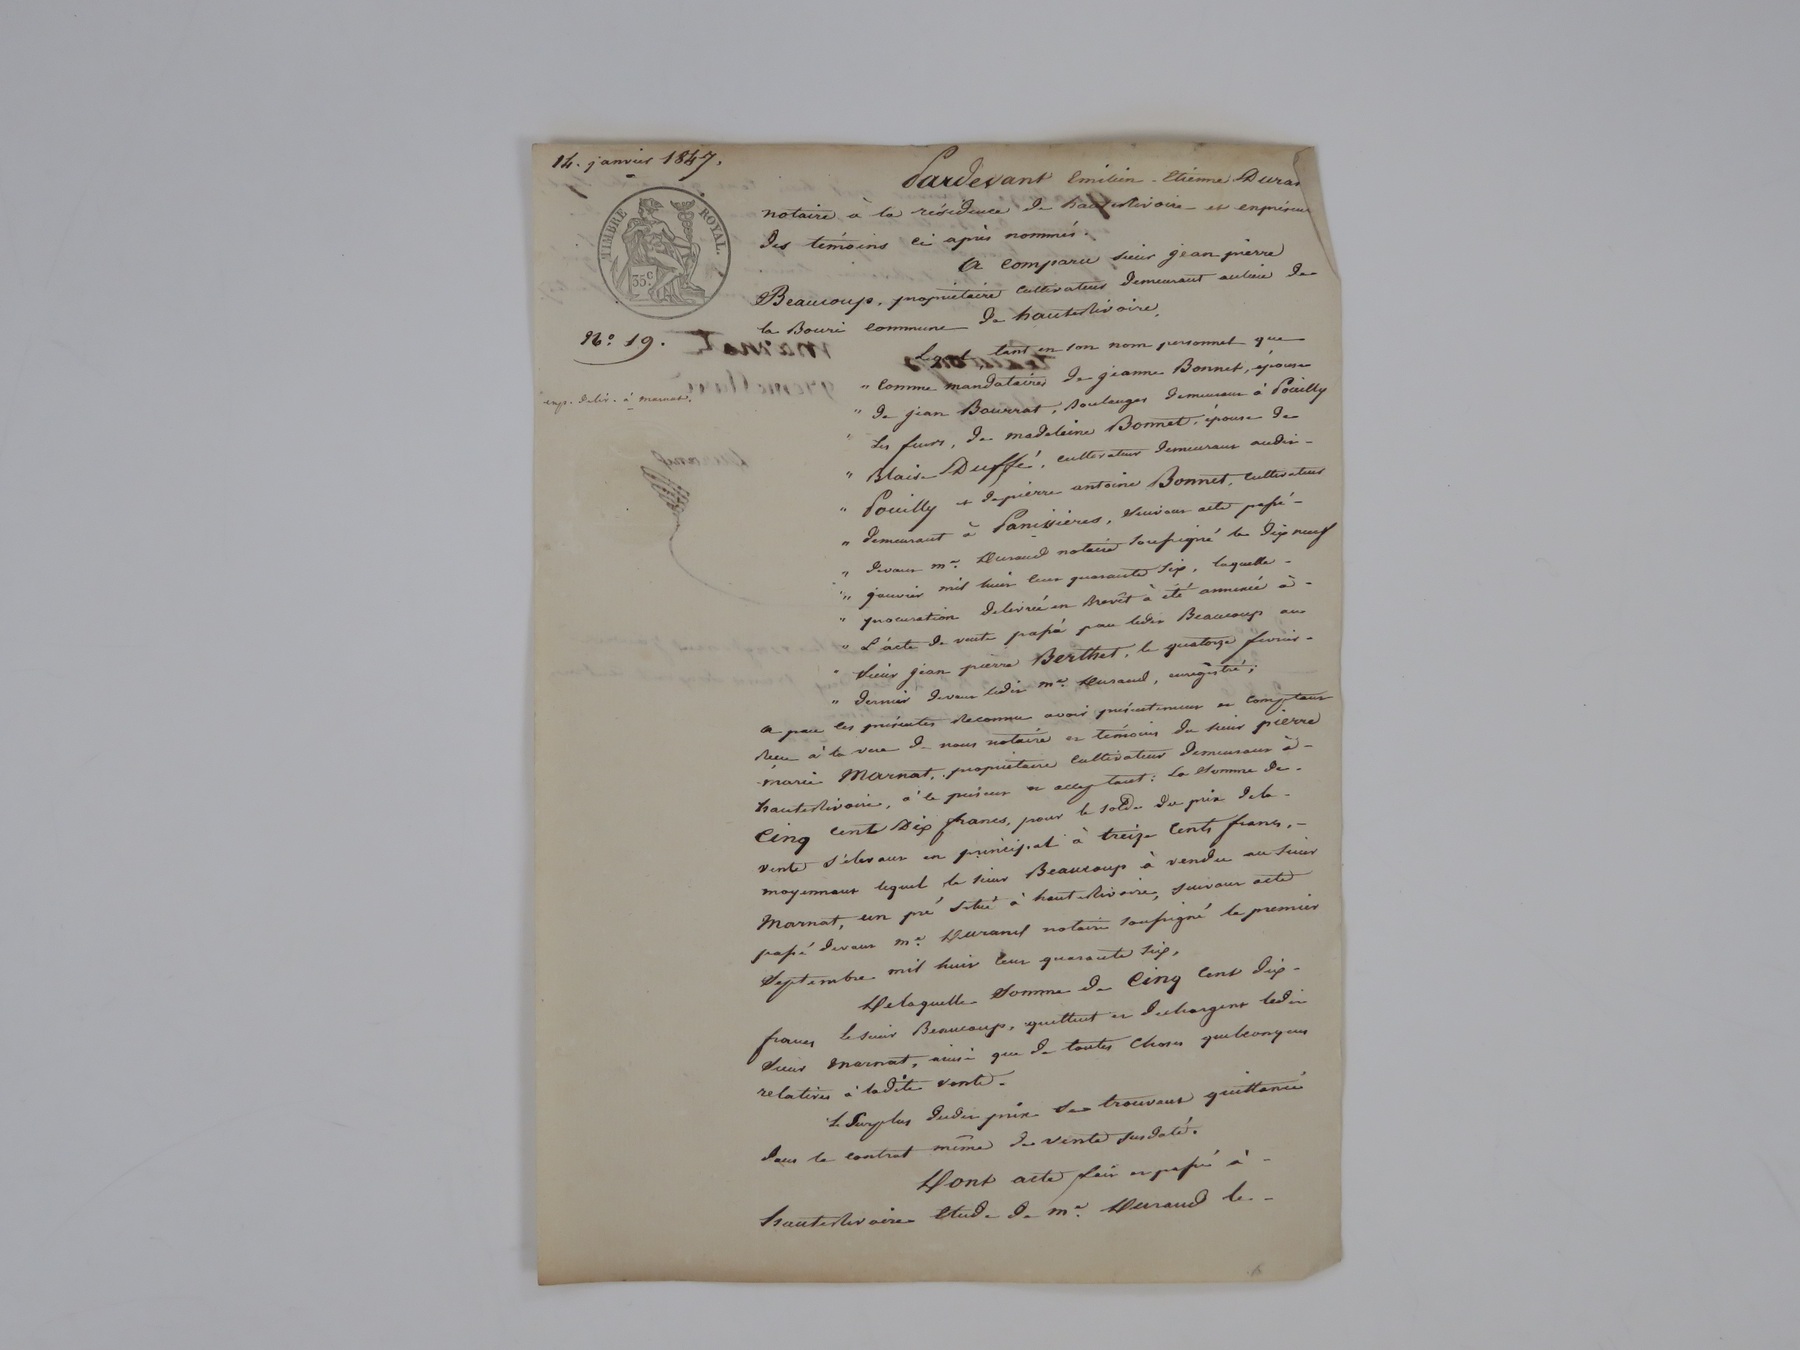 14. janvier 1847.
TIMBRE ROYAL.
35 c.
No. 19.
exp. deliv. à marnat.
Pardevant Emilien Etienne Duran
notaire à la résidence de hauterivoire et en présen
des témoins ci après nommés.
A comparu sieur jean pierre
Beaucoup, propriétaire cultivateur demeurant au lieu de
la Bouri commune de hauterivoire,
Lequel tant en son nom personnel que
" comme mandataire de jeanne Bonnet, épouse
" de jean Bourrat, Boulanger demeurant à Pouilly
" les feurs, de madeleine Bonnet, épouse de
" Blaise Duffé, cultivateur demeurant audit
" Pouilly et de pierre antoine Bonnet, cultivateur
" demeurant à Panissières, suivant acte passé
" devant me. Durand notaire soussigné le dix neuf
" janvier mil huit cent quarante six, laquelle
" procuration délivrée en Brevêt à été annexée à
" L'acte de vente passé par ledit Beaucoup au
" sieur jean pierre Berthet, le quatorze fevrier
" dernier devant ledit me. Durand, enregistré;
a par les présentes Reconnu avoir présentement et comptant
Reçu à la vue de nous notaire et témoins du sieur pierre
marie Marnat, propriétaire cultivateur demeurant à
hauterivoire, à ce présent et acceptant: La somme de
Cinq cents Dix francs, pour le solde du prix de la
vente s'élevant en principal à treize Cents francs,
moyennant lequel le sieur Beaucoup à vendu au sieur
Marnat, un pré situé à hauterivoire, suivant acte
passé devant me. Durand notaire soussigné le premier
septembre mil huit cent quarante six,
De laquelle somme de Cinq Cent dix
francs le sieur Beaucoup, quittent et dechargent ledit
sieur marnat, ainsi que de toutes choses quelconques
relatives à ladite vente.
Le surplus dudit prix se trouvant quittancé
dans le contrat même de vente susdaté.
Dont acte fait et passé à
hauterivoire Etude de me. Durand le